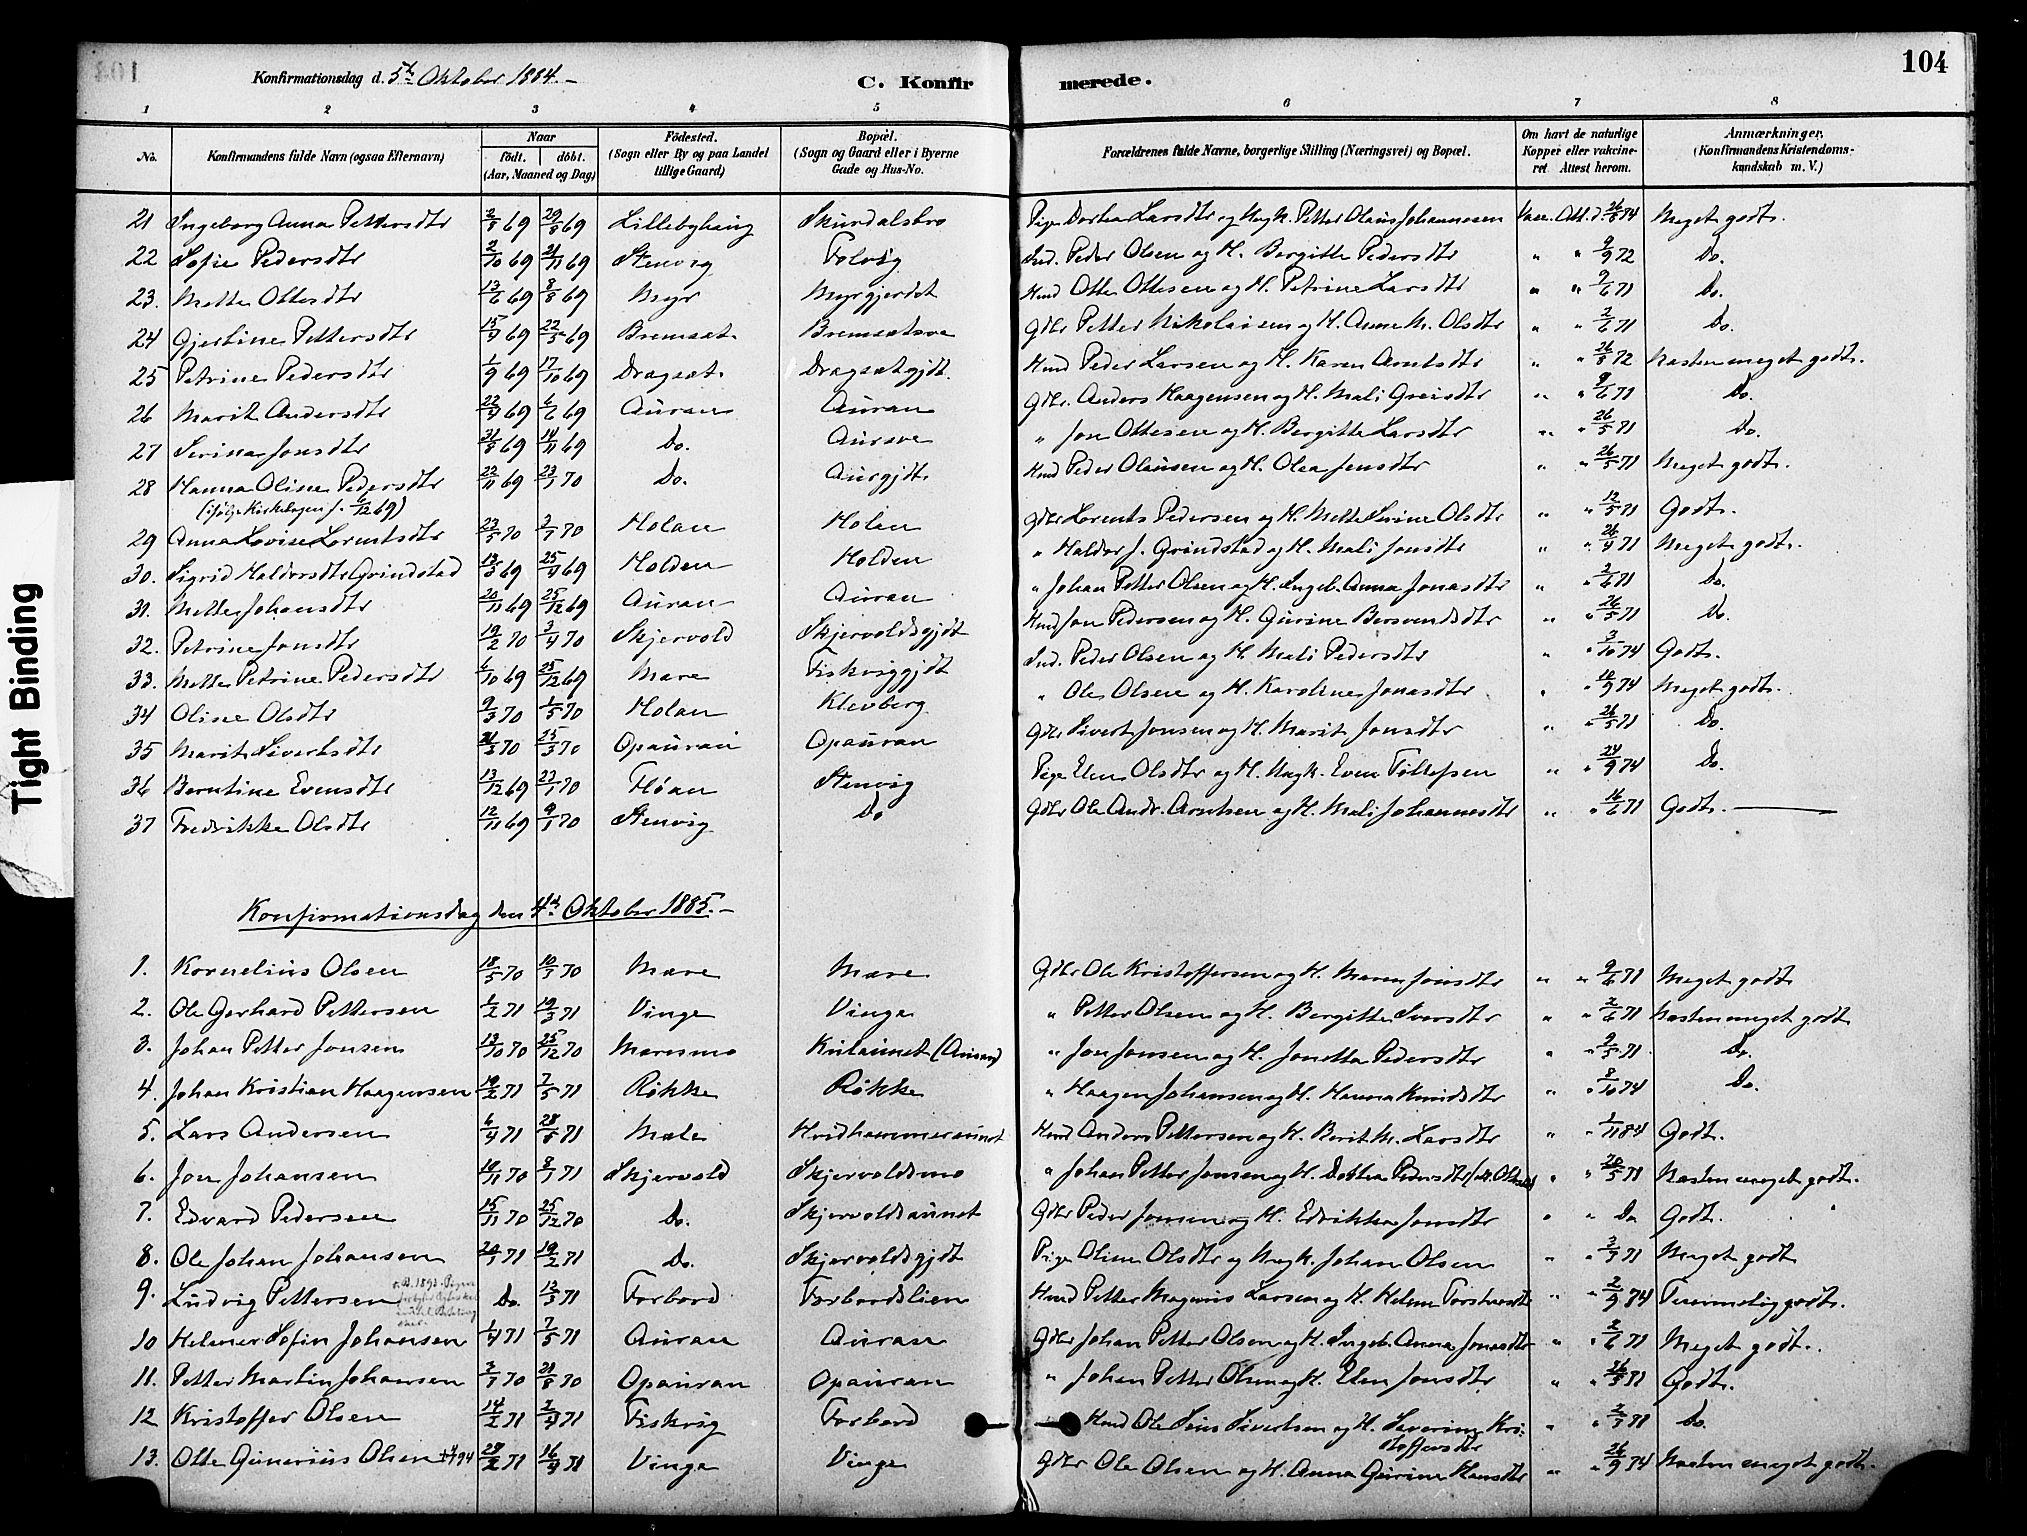 104
Konfirmationsdag d. 5te Oktober 1884.-
C. Konfir
merede.
104
1 2 3 4 5 6 7 8
No.
Konfirmandens fulde Navn (ogsaa Efternavn)
Naar
födt. döbt.
(Aar, Maaned og Dag)
Födested.
(Sogn eller By og paa Landet
tillige Gaard)
Bopæl.
(Sogn og Gaard eller i Byerne
Gade og Hus-No.
Forældrenes fulde Navne, borgerlige Stilling (Næringsvei) og Bopæl.
Om havt de naturlige
Kopper eller vakcine-
ret Attest herom.
Anmærkninger.
(Konfirmandens Kristendoms-
kundskab m. V.)
21 Ingeborg Anna Pettersdtr 2/8 69 29/8 69 Lillebyhaug Skurdalsbro Pige Dorthea Larsdtr og Ungk. Petter Olaus Johannesen Vacc. Att. d. 26/8 74 Meget godt.
22 Sofie Pedersdtr 2/10 69 21/11 69 Stenvig Folvig Ind. Peder Olsen og H. Bergitte Pedersdtr " " 9/9 72 Do.
23. Mette Ottesdtr 13/6 69 8/8 69 Myr Myrgjerdet Husd Otte Ottesen og H. Petrine Larsdtr " " 2/6 71 Do.
24 Gjertine Pettersdtr 15/4 69 22/5 69 Bremset. Bremsetsve Gdbr Petter Nikolaisen og H. Anne M. Olsdtr " " 2/6 71 Do.
25 Petrine Pedersdtr 1/9 69 17/10 69 Dragset. Dragsetgjdt. Husd Peder Larsen og H. Karen Arntsdtr " " 26/8 72 Næsten meget godt.
26 Marit Andersdtr 22/4 69 6/6 69 Auran Auran Gdbr. Anders Haagensen og H. Mali Greisdtr " " 9/6 71 Do.
27 Serina Jonsdtr 31/8 69 14/11 69 Do. Aursve " Jon Ottesen og H. Bergitte Larsdtr " " 26/5 71 Do.
28 Hanna Oline Pedersdtr 22/11 69 23/1 70 Do. Aurgjdt. Husd Peder Olausen og H. Olea Jensdtr " " 26/5 71 Meget godt.
(ifølge Kirkebogen f. 6/12 69)
29 Anna Lovise Lorentsdtr 23/5 70 3/7 70 Holan Holan Gdbr Lorents Pedersen og H. Mette Serine Olsdtr " " 12/5 71 Godt.
30. Sigrid Haldorsdtr Grindstad 13/3 69 25/4 69 Holden Holden " Haldor J. Grindstad og H. Mali Jonsdtr " " 26/4 71 Meget godt.
31. Mette Johansdtr 20/11 69 25/12 69 Auran Auran " Johan Petter Olsen og H. Ingeb. Anna Jonasdtr " " 2/6 71 Do.
32. Petrine Jonsdtr 19/2 70 3/4 70 Skjervold Skjervoldsgjdt Husd Jon Pedersen og H. Gurine Bersvendsdtr " " 26/5 71 Do.
33. Mette Petrine Pedersdtr 6/10 69 25/12 69 Mære Fiskviggjdt Ind. Peder Olsen og H. Mali Pedersdtr " " 3/10 74 Godt.
34 Oline Olsdtr 9/3 70 1/5 70 Holan Klevberg " Ole Olsen og H. Karoline Jonasdtr " " 18/9 74 Meget godt.
35 Marit Sivertsdtr 21/3 70 25/3 70 Opauran Opauran Gdbr Sivert Jonsen og H. Marit Jonsdtr " " 26/5 71 Do.
36 Berntine Evensdtr 13/12 69 23/1 70 Flöan Stenvig Pige Elen Olsdtr og H. Ungk. Even Tollefsen " " 24/9 74 Do.
37 Fredrikke Olsdtr 12/11 69 9/1 70 Stenvig Do Gdbr Ole Andr. Arntsen og H. Mali Johannesdtr " " 16/6 71 Godt.
Konfirmationsdag den 4de Oktober 1885.-
1. Kornelius Olsen 18/5 70 10/7 70 Mære Mære Gdbr Ole Kristoffersen og H. Maren Jonsdtr " " 9/6 71 Meget godt
2. Ole Gerhard Pettersen 1/2 71 19/3 71 Vinge Vinge " Petter Olsen og H. Bergitte Iversdtr " " 2/6 71 Næsten meget godt
3. Johan Petter Jonsen 13/10 70 25/12 70 Maresmo Kulaunet (Auran) " Jon Jonsen og H. Jonetta Pedersdtr " " 9/5 71 Do.
4. Johan Kristian Haagensen 19/2 71 7/5 71 Røkke Røkke " Haagen Johansen og H. Hanna Knudsdtr " " 8/10 74 Do.
5. Lars Andersen 6/4 71 28/5 71 Mæle Hvidhammeraunet Husd Anders Pettersen og H. Berit M. Larsdtr " " 1/11 84 Godt.
6. Jon Johansen 19/11 70 8/1 71 Skjervold Skjervoldsmo " Johan Petter Jonsen og H. Dorthea Pedersdtr " " 20/5 71 Næsten meget godt.
7. Edvard Pedersen 15/11 70 25/12 70 Do. Skjervoldsaunet Gdbr Peder Jonsen og H. Edrikka Jonsdtr " " Do Godt.
8. Ole Johan Johansen 20/1 71 19/2 71 Do. Skjervoldsgjdt Pige Oline Olsdtr og Ungk. Johan Olsen " " 3/7 71 Meget godt
9. Ludvig Pettersen Do. 12/3 71 Forbord Forbordslien Husd Petter Magnus Larsen og H. Helena Torstensdtr " " 2/9 84 Temmelig godt.
10 Helmer Sofin Johansen 1/4 71 7/5 71 Auran Auran Gdbr Johan Petter Olsen og H. Ingeb. Anna Jonasdtr " " 2/6 71 Meget godt.
11. Petter Martin Johansen 3/7 70 21/8 70 Opauran Opauran " Johan Petter Olsen og H. Elen Jonsdtr " " 26/5 71 Godt.
12 Kristoffer Olsen 14/2 71 2/4 71 Fiskvig Forbord Husd Ole Sius Sivertsen og H. Severine Kri-
stoffersdtr " " 2/7 71 Do.
13. Otte Gunerius Olsen 28/2 71 16/4 71 Vinge Vinge Gdbr Ole Olsen og H. Anna Gurine Hansdtr " " 26/9 74 Næsten meget godt.
Tight Binding